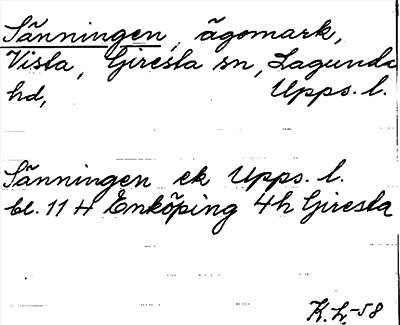 Sänningen, ägomark,
Vista, Giresta sn, Lagunda
hd, Upps. l.
Sänningen ek Upps. l.
bl. 11 H Enköping 4h Giresta
K.L.-58